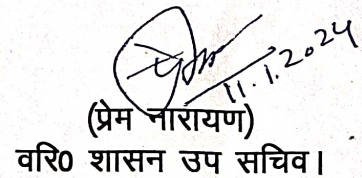 11.1.2024
(प्रेम नारायण)
वरि0 शासन उप सचिव।